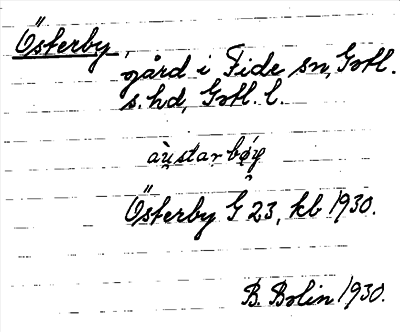 Österby,
gård i Fide sn, Gotl.
s. hd, Gotl. l.
àu̯star bǿy̯
Österby G 23, kb 1930.
B. Bolin 1930.